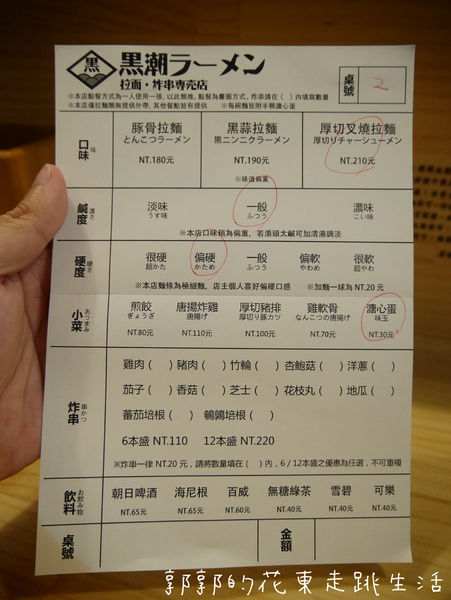 黒
黒潮ラーメン
拉麵・炸串専売店
桌號 2
※本店點餐方式為一人使用一張，以此類推，點餐為畫圈方式，炸串請在（ ）內填寫數量
※本店僅拉麵類無提供外帶，其他餐點皆有提供 ※每碗麵皆附半顆溏心蛋
口味 味
豚骨拉麵 黑蒜拉麵 厚切叉燒拉麵
とんこつラーメン 黒ニンニクラーメン 厚切りチャーシューメン
NT.180元 NT.190元 NT.210元
※味道偏重
鹹度 濃さ
淡味 一般 濃味
うす味 ふつう こい味
※本店口味稍為偏重，若湯頭太鹹可加清湯調淡
硬度 硬さ
很硬 偏硬 一般 偏軟 很軟
超かた かため ふつう やわめ 超やわ
※本店麵條為極細麵，店主個人喜好偏硬口感 ※加麵一球為 NT.20 元
小菜 おつまみ
煎餃 唐揚炸雞 厚切豬排 雞軟骨 溏心蛋
ぎょうざ 唐揚げ 厚切り豚カツ なんこつの唐揚げ 味玉
NT.80元 NT.110元 NT.100元 NT.70元 NT.30元
炸串 串かつ
雞肉（ ）豬肉（ ）竹輪（ ）杏鮑菇（ ）洋蔥（ ）
茄子（ ）香菇（ ）芝士（ ）花枝丸（ ）地瓜（ ）
蕃茄培根（ ） 鵪鶉培根（ ）
6本盛 NT.110 12本盛 NT.220
※炸串一律 NT.20 元，請將數量填在（ ）內，6 / 12本盛之優惠為任選，不可重複
飲料 お飲み物
朝日啤酒 海尼根 百威 無糖綠茶 雪碧 可樂
NT.65元 NT.65元 NT.60元 NT.40元 NT.40元 NT.40元
桌號 金額
郭郭的花東走跳生活